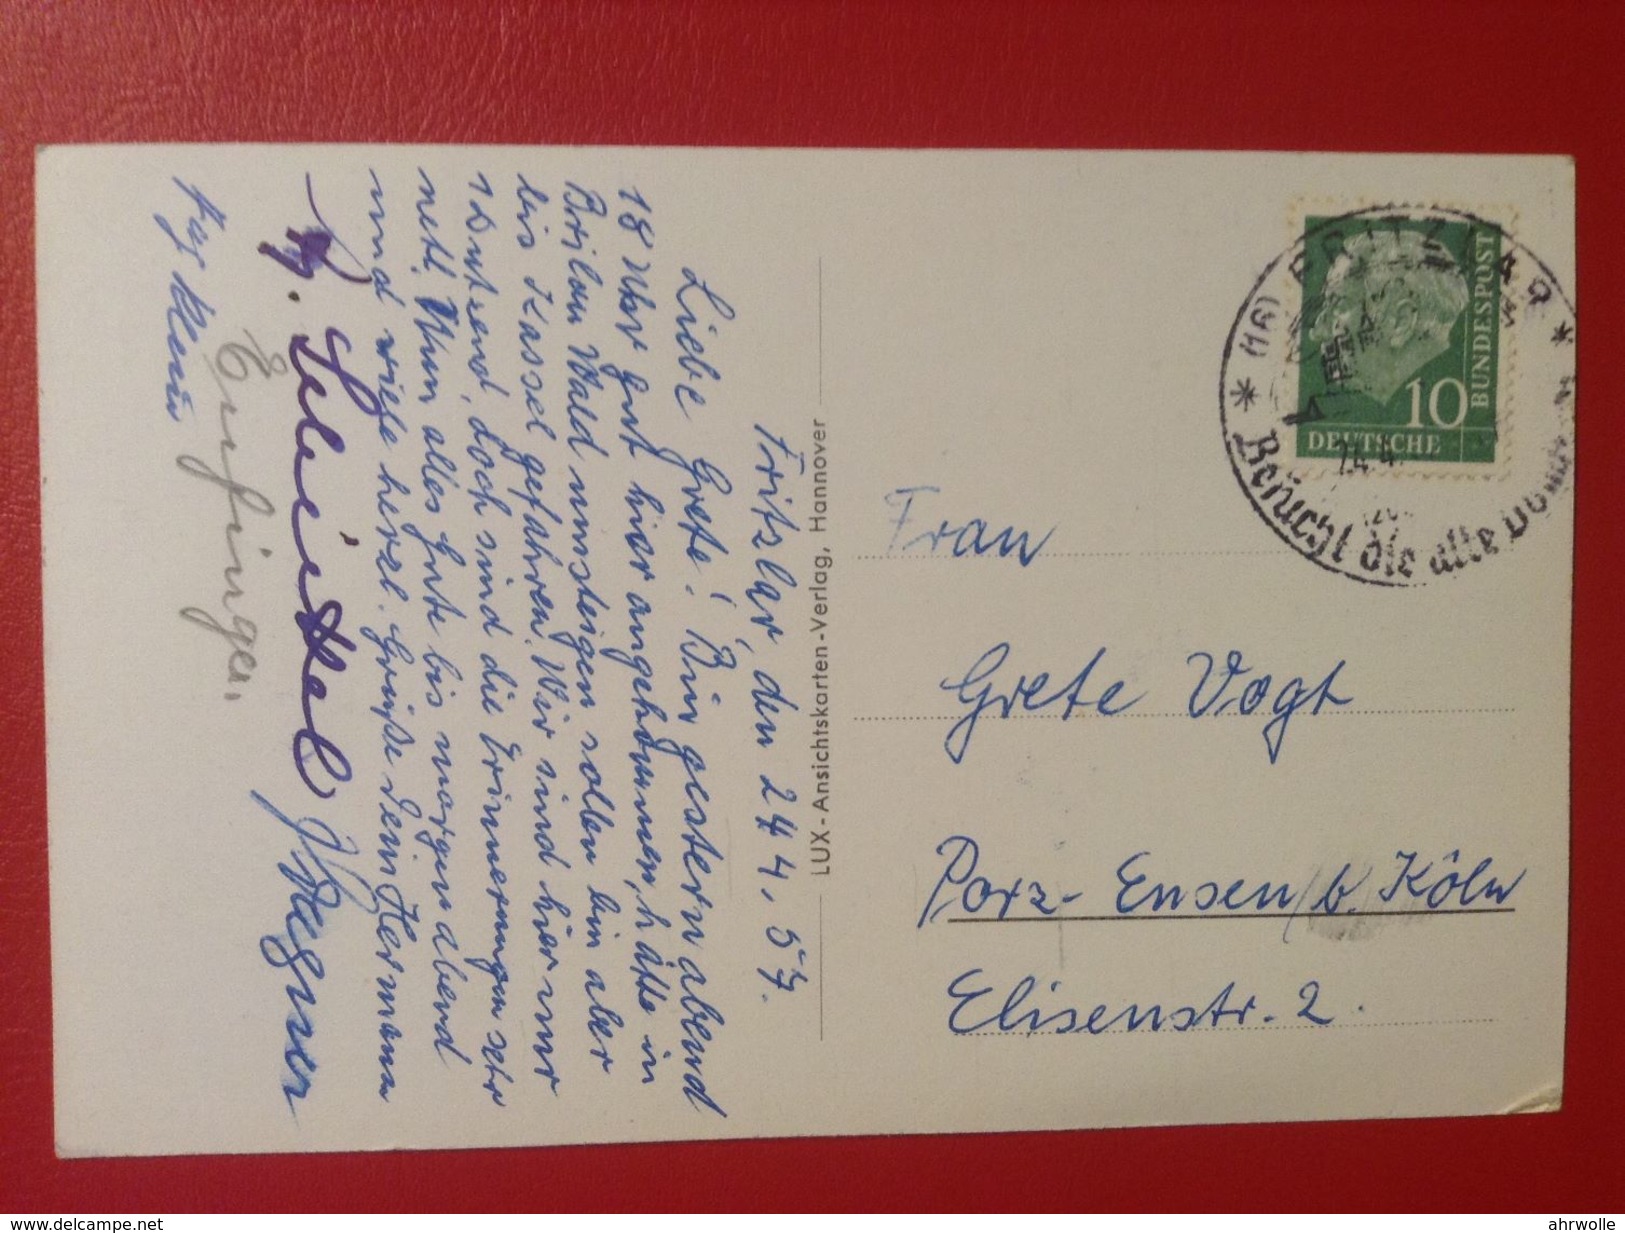 Fritzlar, den 24.4.57.
Liebe Grete! Bin gestern abend
18 Uhr gut hier angekommen, hätte in
Brilon Wald umsteigen sollen bin aber
bis Kassel gefahren. Wir sind hier nur
1 Dutzend, doch sind die Erinnerungen sehr
nett. Nun alles Gute bis morgen abend
und viele herzl. Grüße Dein Hermann
Wegner
LUX-Ansichtskarten-Verlag, Hannover
FRITZLAR
Besucht die alte Dom
DEUTSCHE
BUNDESPOST
10
Frau
Grete Vogt
Porz-Ensen/b. Köln
Elisenstr. 2.
www.delcampe.net
ahrwolle